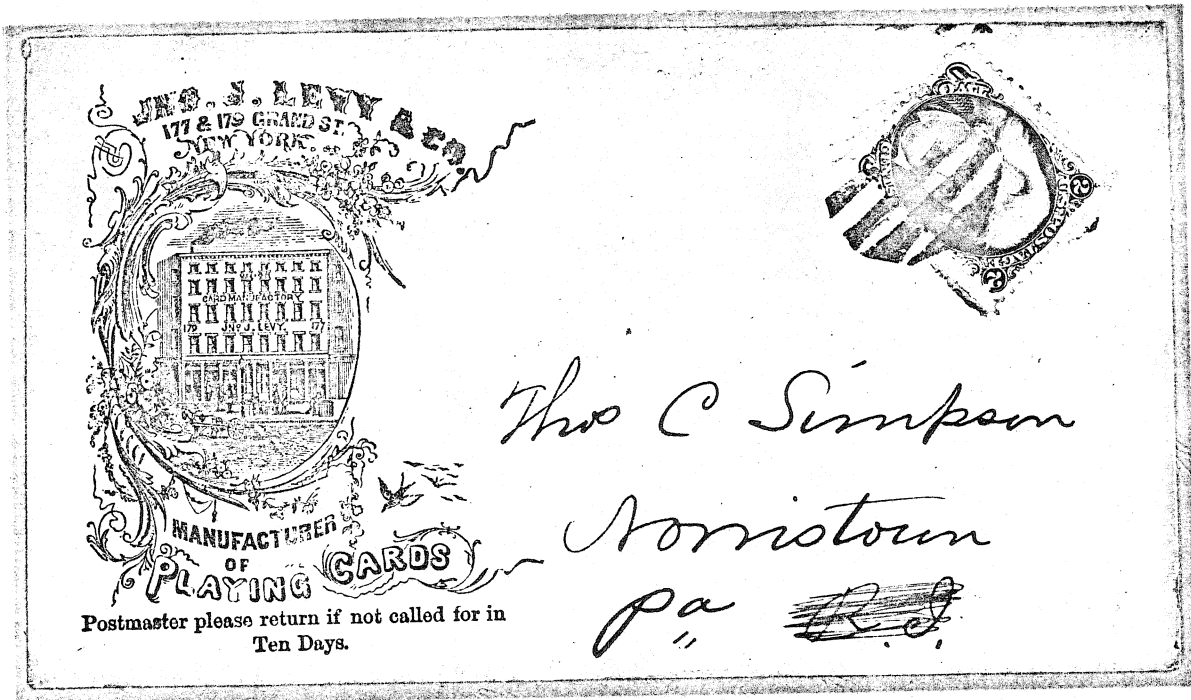 JNO. J. LEVY & CO.
177 & 179 GRAND ST.
NEW YORK.
CARD MANUFACTORY
179 JNO J. LEVY. 177
MANUFACTURER
OF
PLAYING CARDS
Postmaster please return if not called for in
Ten Days.
2 U.S. POSTAGE 2
Thos C Simpson
Norristown
Pa R.I.